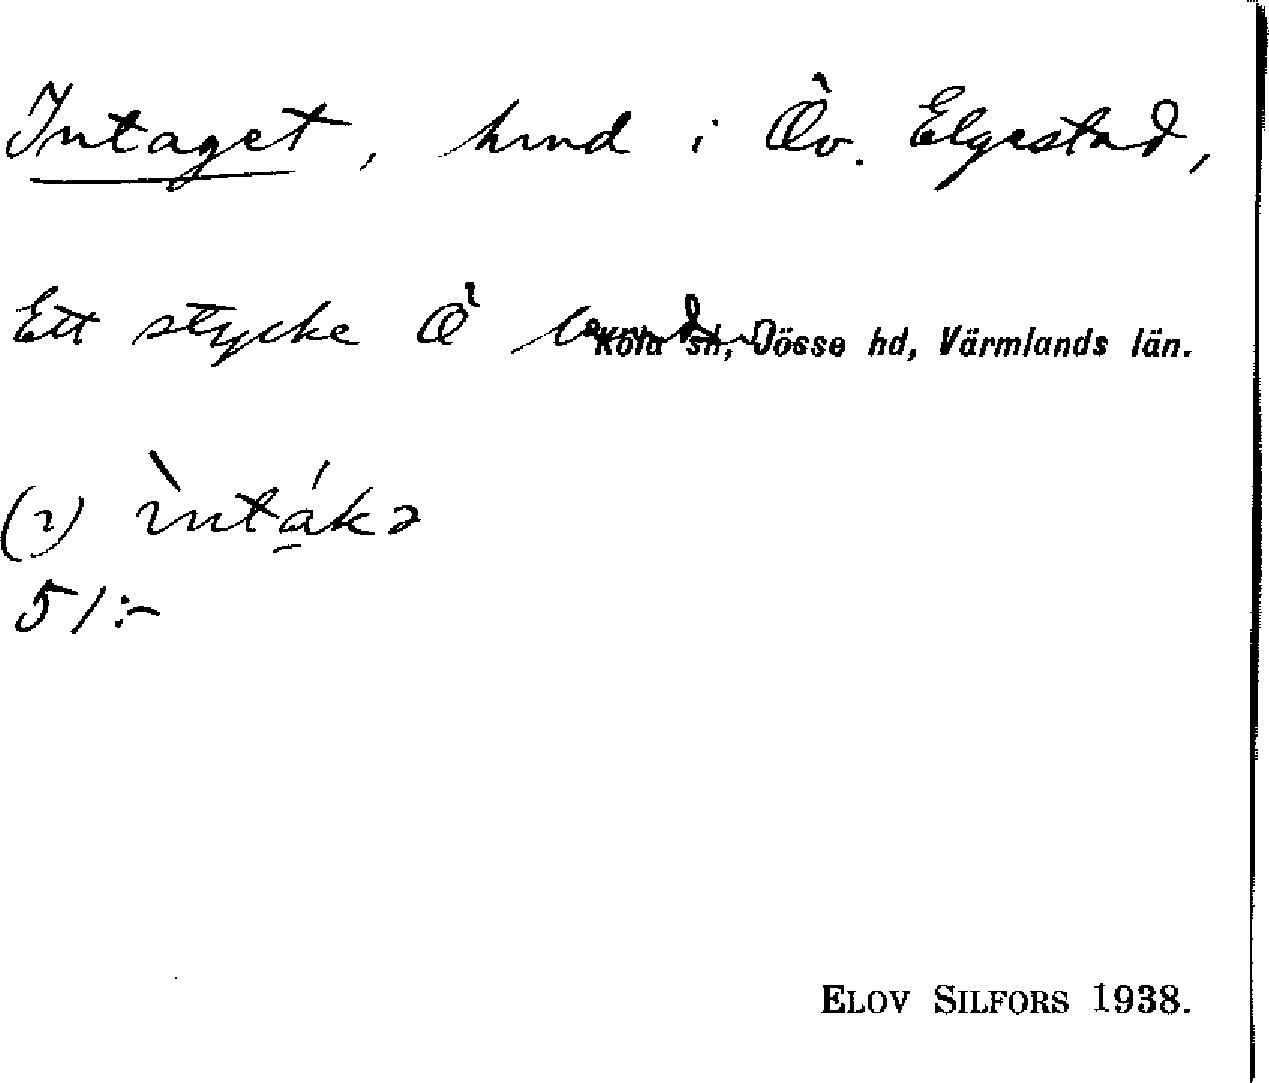 Intaget, hmd i Öv. Elgestad,
Ett stycke Ö
Köla sn, Jösse hd, Värmlands län.
(ı) ìntákə
51:-
ELOV SILFORS 1938.